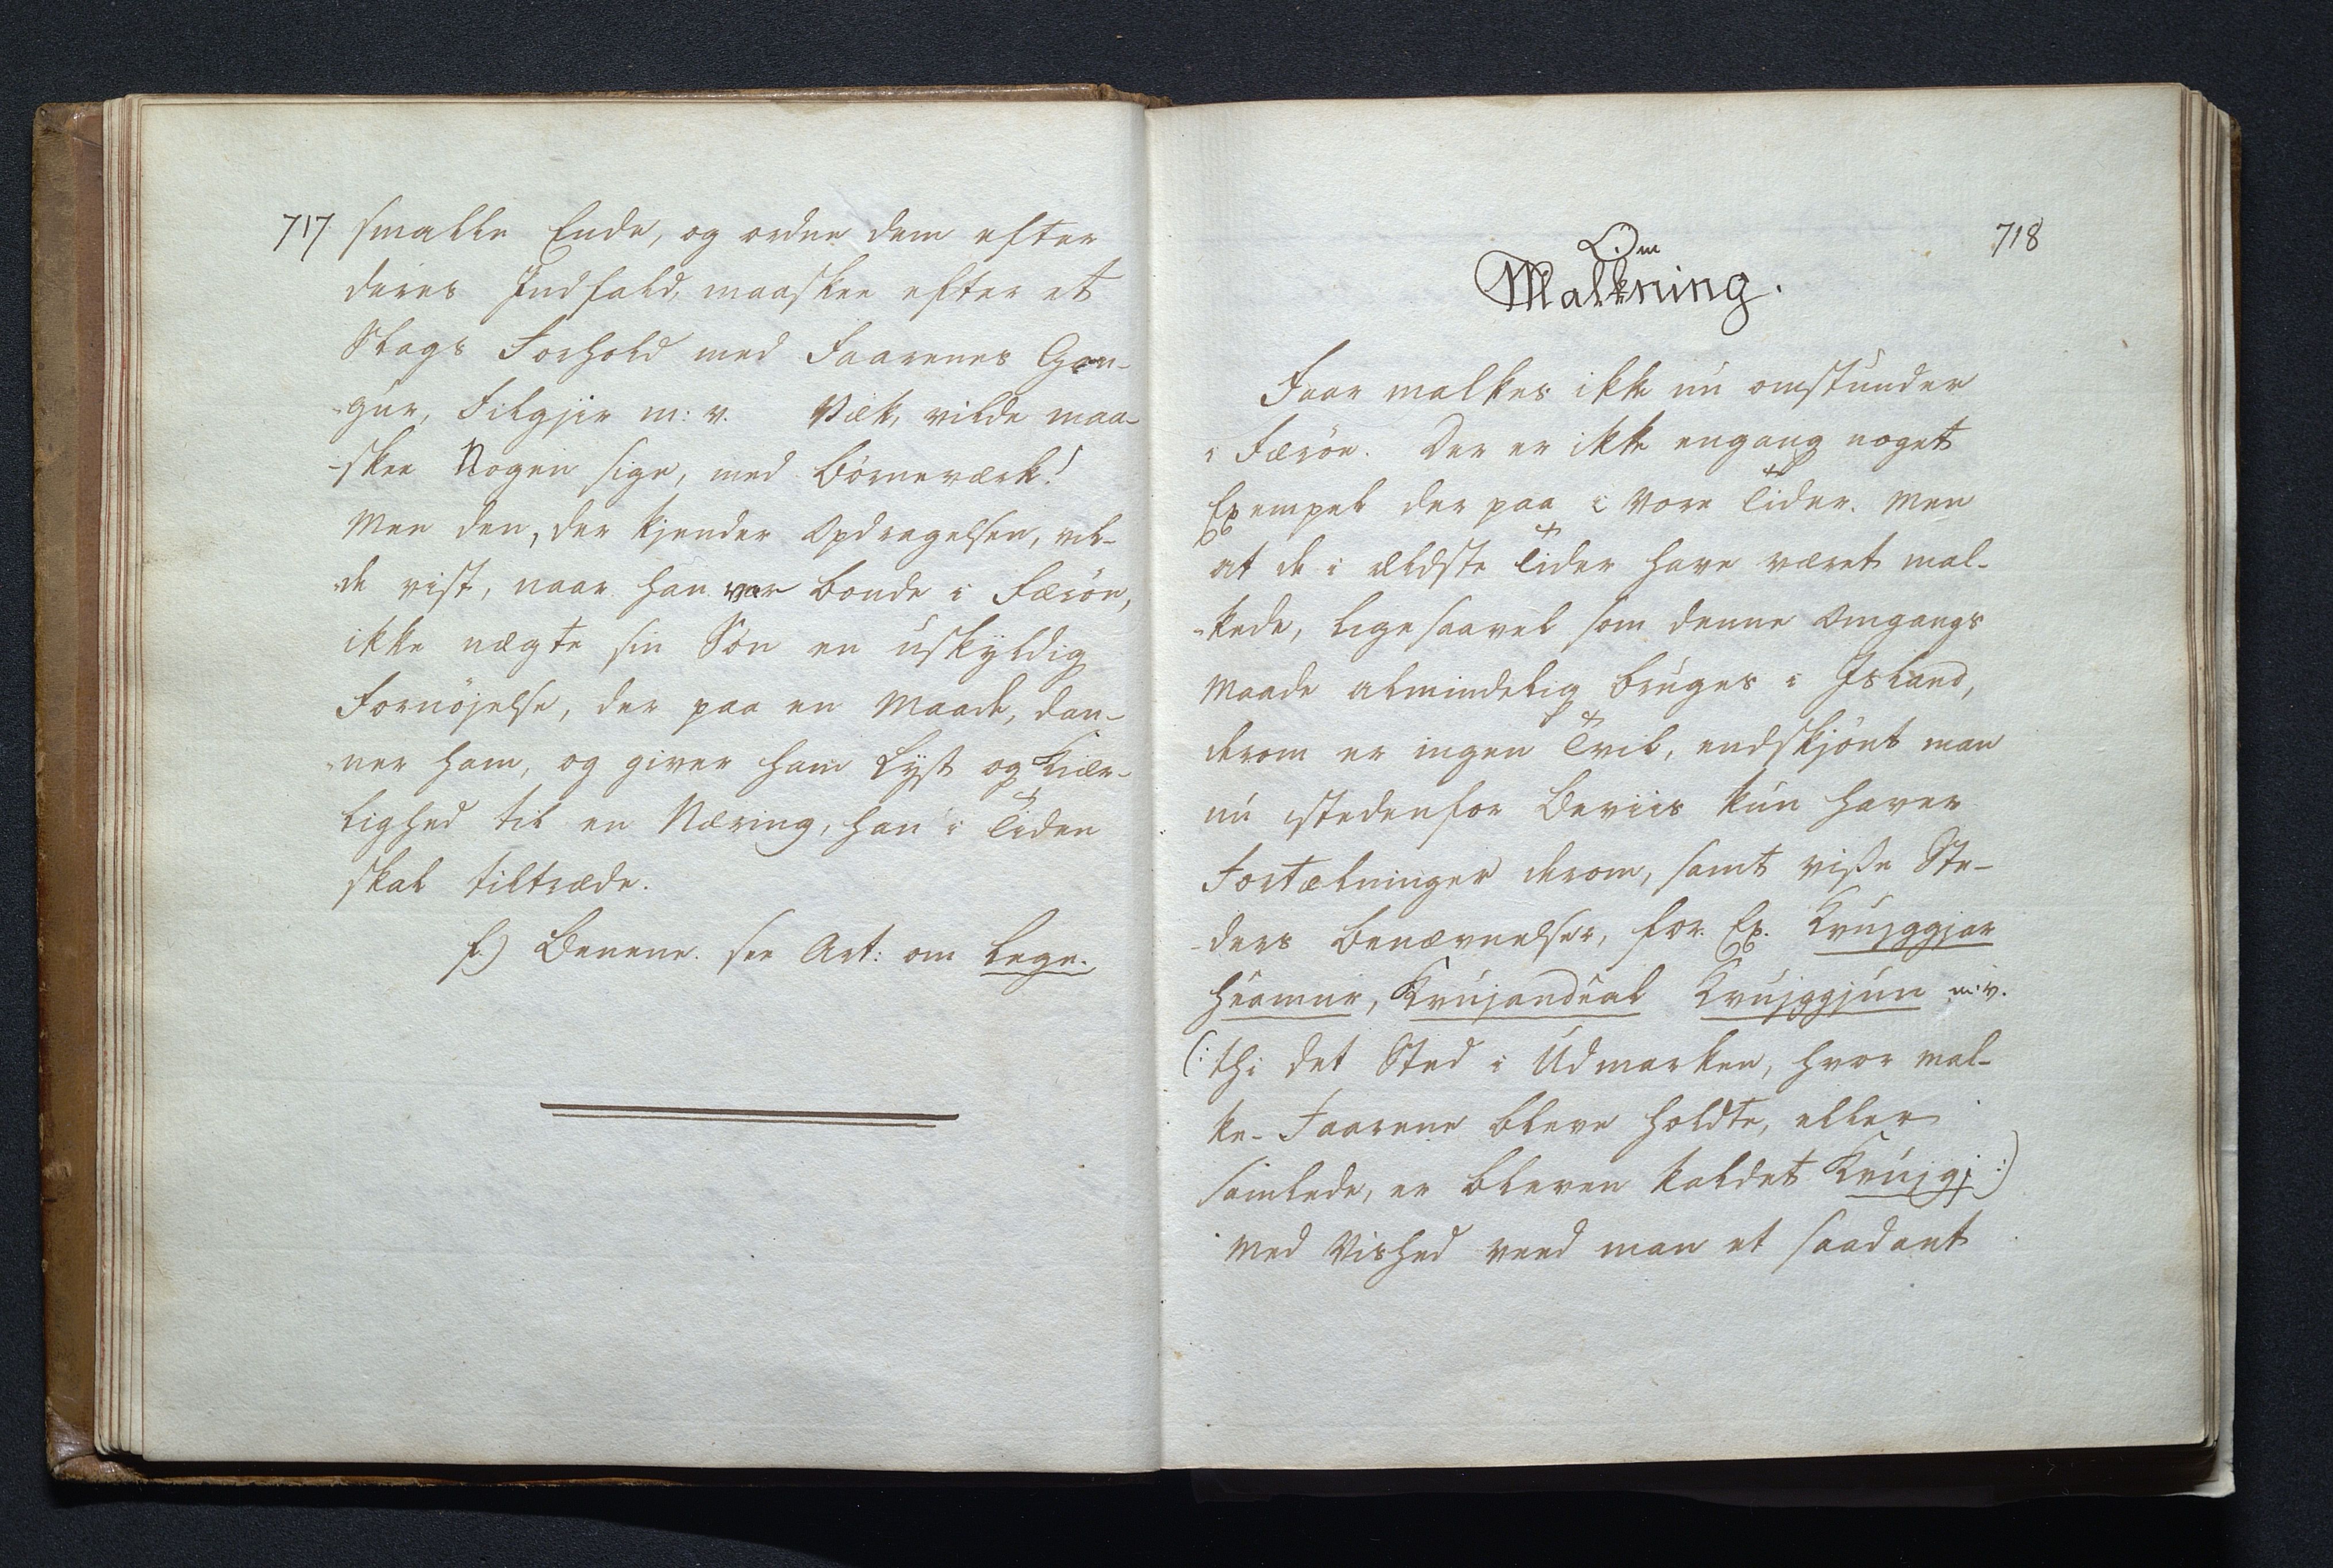 717
smalle Ende, og ordne dem efter
deres Indfald, maaskee efter et
Slags Forhold med Faarenes Gon-
-gur, Filgjir m: v. Væk, vilde maa-
-skee Nogen sige, med Børneværk!
Men den, der kjender Opdragelsen, vil-
-de vist, naar han var Bonde i Færöe,
ikke nægte sin Søn en uskyldig
Fornöjelse, der paa en Maade, dan-
-ner ham, og giver ham Lyst og Kiær-
lighed til en Næring, han i Tiden
skal tiltræde.
f.) Benene. see Art: om Lege.
718
Om
Malkning.
Faar malkes ikke nu omstunder
i Færöe. Der er ikke engang noget
Exempel der paa i vore Tider. Men
at de i ældste Tider have været mal-
-kede, ligesaavel som denne Omgangs
Maade almindelig bruges i Island,
derom er ingen Tvil, endskjönt man
nu istedenfor Beviis kun haver
Fortælninger derom, samt visse Ste-
-ders Benævnelser, for. Ex. Kvujggjar
heamur, Kvujandeal Kvujggjun m:v.
(: thi det Sted i Udmarken, hvor mal-
ke-Faarene bleve holdte, eller
samlede, er bleven kaldet Kvujgj :)
Med Vished veed man et saadant